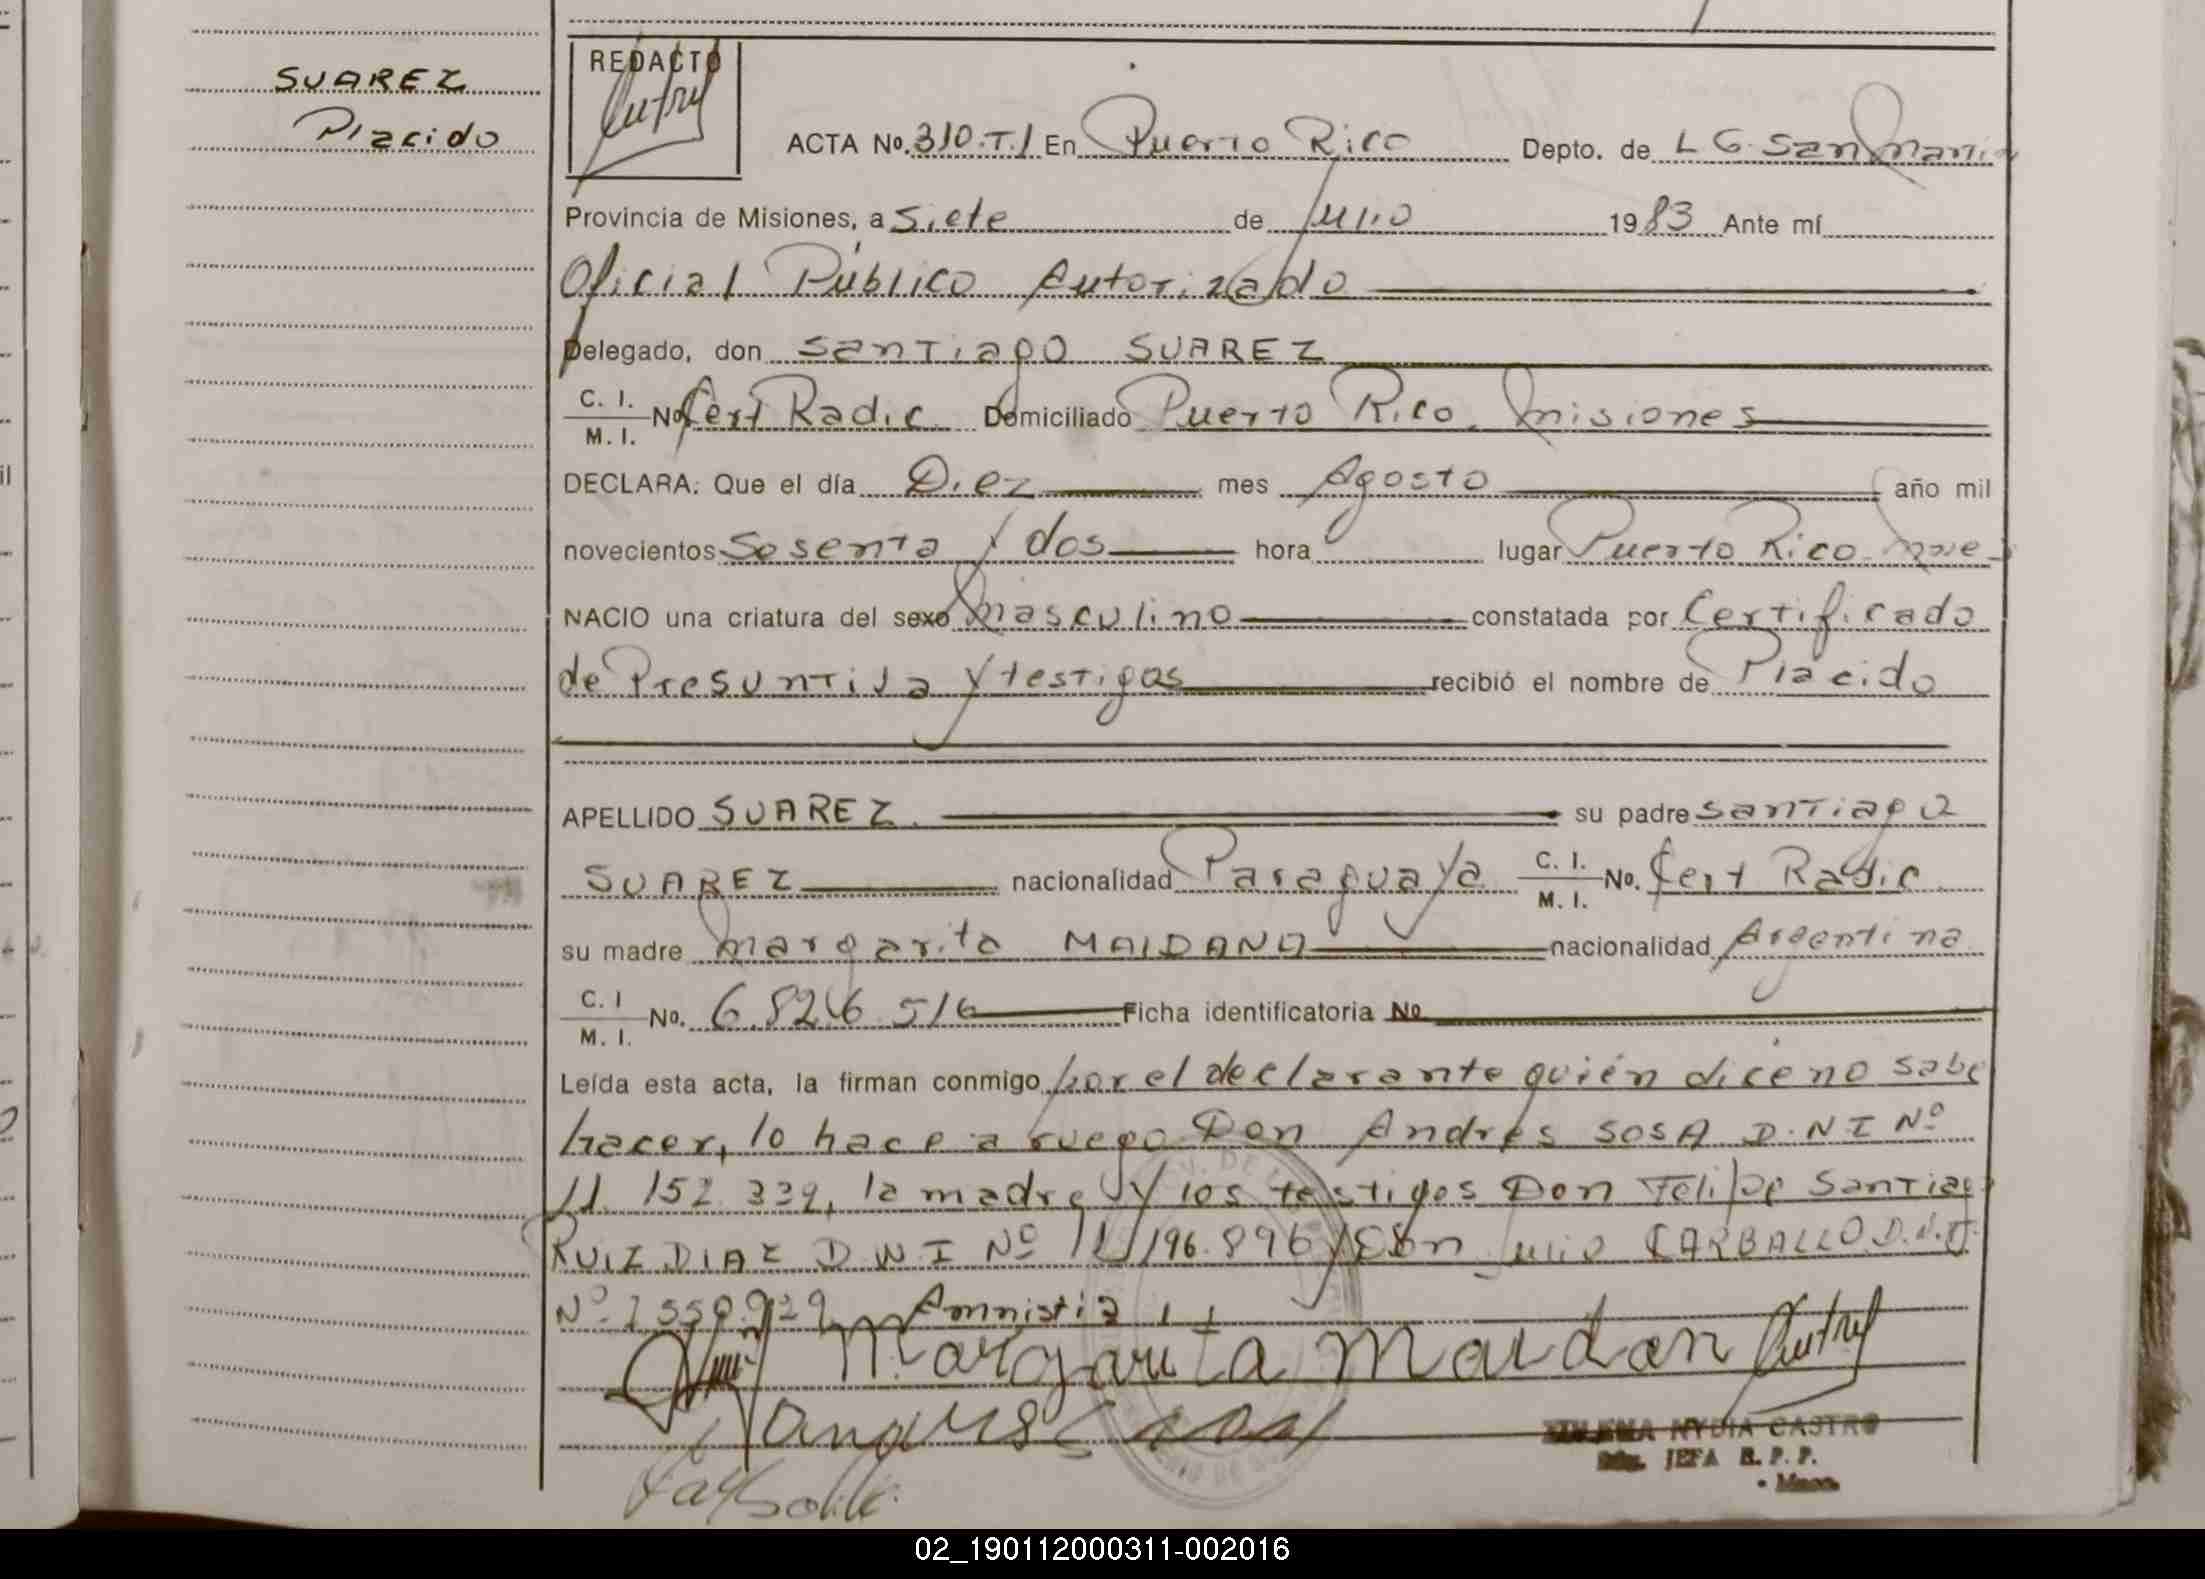 SUAREZ
Placido
REDACTO
ACTA Nº. 310.T.I En Puerto Rico Depto. de L G. San Martin
Provincia de Misiones, a Siete de Julio 1983 Ante mí
Oficial Público Autorizado
Delegado, don Santiago SUAREZ
C. I.
M. I. Nº Cert Radic Domiciliado Puerto Rico. Misiones
DECLARA: Que el día Diez mes Agosto año mil
novecientos Sesenta y dos hora lugar Puerto Rico Mnes
NACIO una criatura del sexo Masculino constatada por Certificado
de Presuntiva y testigos recibió el nombre de Placido
APELLIDO SUAREZ su padre Santiago
SUAREZ nacionalidad Paraguaya C. I.
M. I. Nº. Cert Radic
su madre Margarita MAIDANA nacionalidad Argentina
C. I
M. I. Nº. 6.826.516 Ficha identificatoria Nº
Leída esta acta, la firman conmigo por el declarante quién dice no sabe
hacer, lo hace a ruego Don Andrés SOSA D.N I Nº
11. 152. 339, la madre y los testigos Don Felipe Santiago
RUIZ DIAZ D N I Nº 11.196.896 y Don Julio CARBALLO D.N.I.
Nº 7.550.929 Amnistia
Margarita Maidan
NYDIA CASTRO
JEFA R. P. P.
02_190112000311-002016